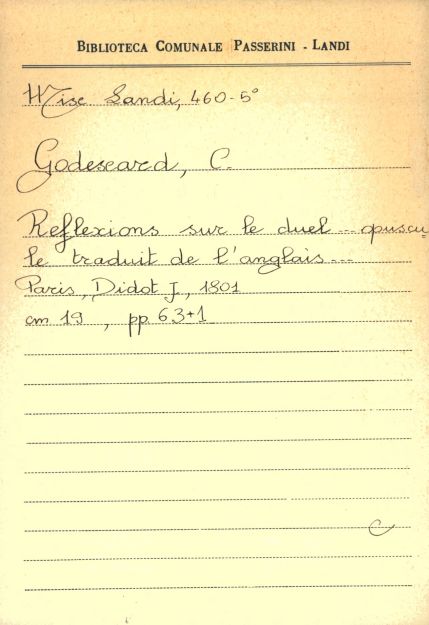 BIBLIOTECA COMUNALE PASSERINI - LANDI
Misc Landi, 460-5°
Godescard, C.
Reflexions sur le duel ... opuscu
le traduit de l'anglais ...
Paris, Didot J, 1801
cm 19 , pp 63+1
C